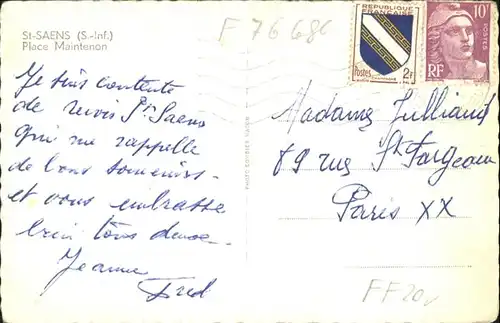 St-SAENS (S.-Inf.)
Place Maintenon
F 76680
REPUBLIQUE
FRANÇAISE
Postes 2F
CHAMPAGNE
10F
POSTES
RF
Je suis contente
de revoir St Saëns
qui me rappelle
de bons souvenirs -
et vous embrasse
bien tous deux -
Jeanne
Fred
Madame Julliand
89 rue St Fargeau
Paris XX
FF 20